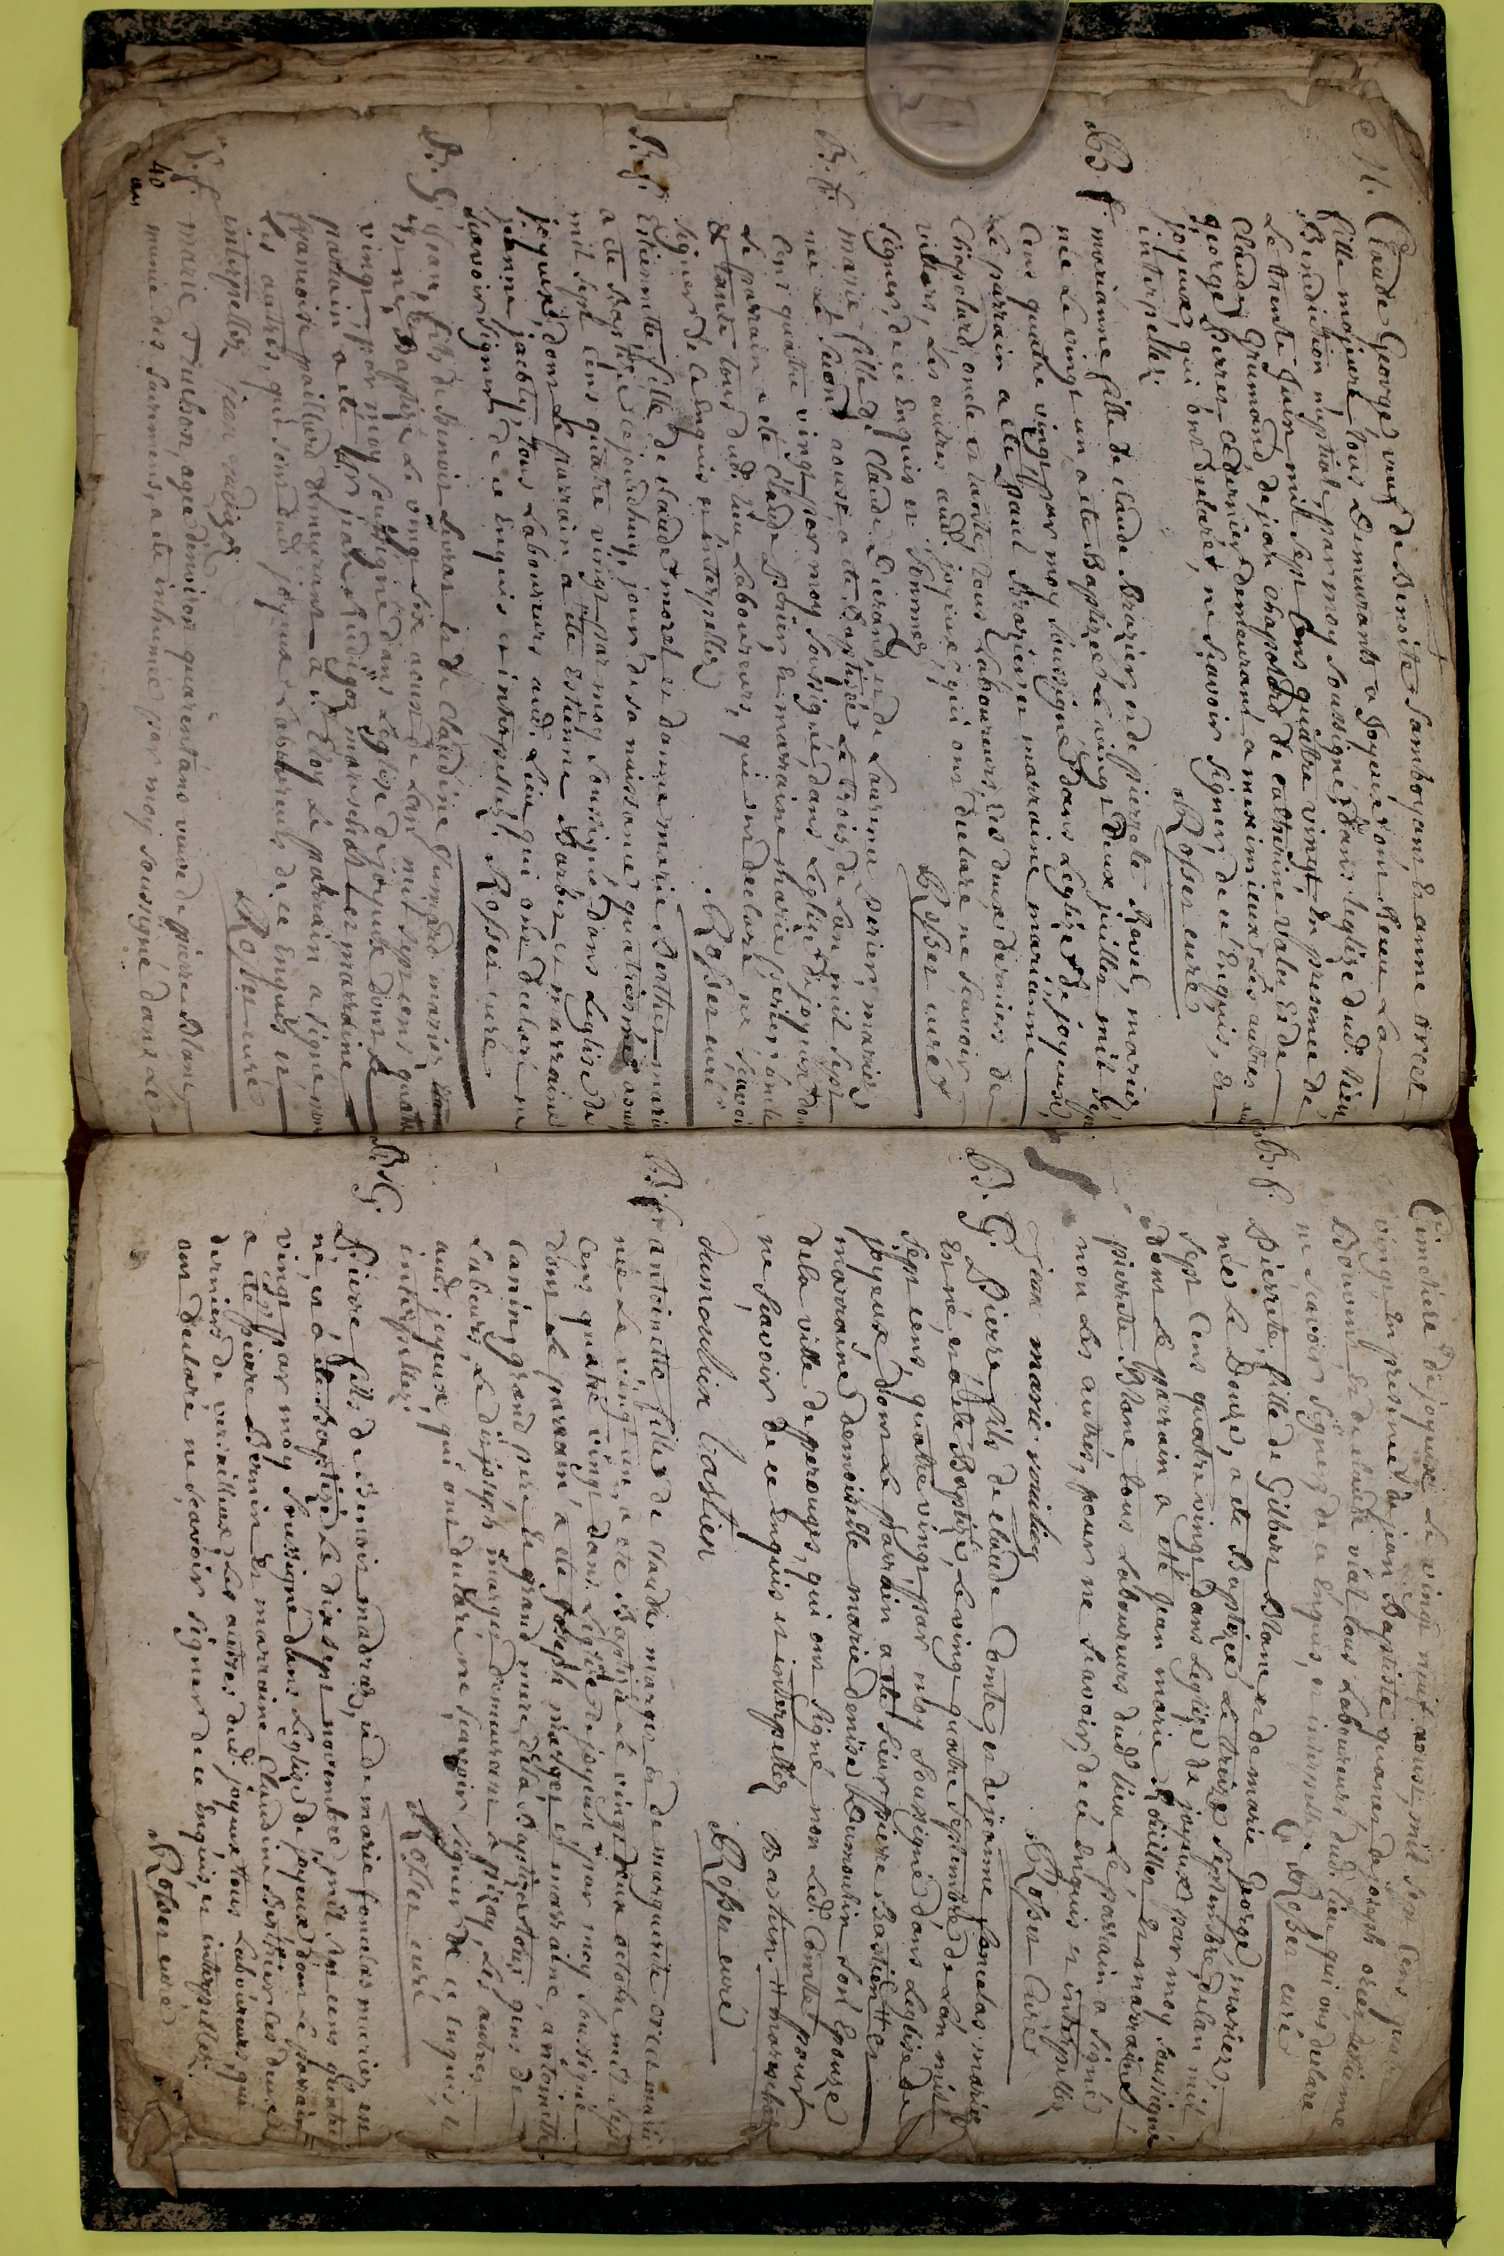 N. Claude George, veuf de Benoite Samboyant & anne orcet
fille majeure tous Demeurants a Joyeux ont Reçu La
Benediction nuptiale par moy soussigné, dans leglize dud. lieu
Le trente Juin mil sept Cens quatre vingt En presence de
Claude Grumond, de jean Chapolard de catherine Valer & de
george perret ce dernier demeurant a meximieux Les autres aud.
joyeux, qui ont declaré, ne sçavoir signer, de ce Enquis, &
interpellés Rosset curé
B f. marianne fille de claude Brazier, et de pierrette Ravel, mariés
née Le vingt un, a ete Baptizée Le vingt deux juillet mil sept
Cens quatre vingt par moy soussigné dans Leglize de joyeux,
Le parrain a ete paul Brazier et marraine marianne
Chapolard, oncle et tante, tous Laboureurs, Les deux derniers de
Les autres aud. joyeux, qui ont declaré ne sçavoir
signer, de ce Enquis et sommés Rosset curé
B. f. marie fille de Claude et de Laurence perier, mariés
née Le second aoust, a ete Baptizée Le trois, de L'an mil sept
Cens quatre vingt par moy soussigné, dans Leglize de joyeux dont
Le parrain a ete claude et marraine marie perier oncle
& tante tous dud. lieu Laboureurs, qui ont declaré ne sçavoir
signer de ce Enquis et interpellés Rosset curé
B. f. Estiennette fille de claude morel et danne marie Berthier mariés
a ete Baptizée cejourdhuy, jour de sa naissance quatorze aoust
mil sept cens quatre vingt par moy soussigné dans Leglize de
joyeux, dont Le parrain a ete Estienne Barbet et marraine
jeanne jacboty, tous Laboureurs aud. Lieu qui ont declaré ne
sçavoir signer de ce Enquis et interpellés. Rosset curé
B. G. jean, fils de Benoit Livras et de Claudine Gumard mariés
Et né, Baptizé Le onze aoust de Lan mil sept cens quatre
vingt, par moy soussigné dans Leglize de joyeux dont Le
parrain a ete jean Audigos mareschal et marraine
francoise paillard demeurant a st. Eloy Le parrain a signé non
Les autres, qui sont dud. joyeux Laboureurs de ce Enquis et
interpellés jean audigos Rosset curé
S. f. marie Trulson, agée denviron quarentans veuve de pierre Blanc,
40 ans munie des sacremens, a ete inhumée par moy soussigné dans Le
Cimetiere de joyeux Le vingt neuf aoust, mil sept Cens quatre
vingt, En presence de jean Baptiste quanet de joseph orset, detienne
Edouvent & de claude vial tous Laboureurs, dud. lieu, qui ont declaré
ne sçavoir signer de ce Enquis, et interpellés Rosset curé
B. f. Pierrette, fille de Gilbert Blanc, et de marie George, mariés.
née Le Douze, a ete Baptizée Le treize septembre, de Lan mil
sept Cens quatre vingt dans Leglize de joyeux par moy soussigné
dont Le parrain a eté jean marie et marraine
pierrette Blanc tous Laboureurs dud. lieu Le parrain a signé
non Les autres, pour ne sçavoir, de ce Enquis et interpellés
jean marie Rosset Curé
B. G. Pierre fils de claude Comte, et de jeanne foncelas mariés
Est né, et a ete Baptizé, Le vingt quatre septembre de Lan mil
sept cens, quatre vingt, par moy soussigné dans Leglize de
joyeux dont Le parrain a ete sieur pierre Bastien # et
marraine demoiselle marie denise Dumoulin son Epouze
de la ville de perouges, qui ont signé non Led. Comte pour
ne sçavoir de ce enquis et interpellés Bastien. # mareschal
dumoulin bastien Rosset curé
B. f. antoinette fille de claude marges et de marguerite orset mariés
née Le vingt un a ete Baptizée Le vingt deux octobre, mil sept
Cens quatre vingt dans Leglize de joyeux par moy soussigné
dont Le parrain, a ete joseph marges et marraine, antoinette
Canin, grand pere & grand mere, de La Baptizée tous gens de
Labeur, Led. joseph marges demeurant a pizay, Les autres
aud. joyeux, qui ont declaré ne sçavoir signer de ce enquis et
interpellés Rosset curé
B. G. Pierre fils de Benoit madras, et de marie foncelas mariés en
né, et a ete Baptizé Le dix sept novembre mil sept cens quatre
vingt par moy soussigné dans Leglize de joyeux dont Le parrain
a ete pierre Bernin et marraine claudine Berthier Les deux
derniers de versailleux Les autres dud. joyeux tous Laboureurs, qui
ont declaré ne sçavoir signer de ce Enquis, et interpellés.
Rosset curé